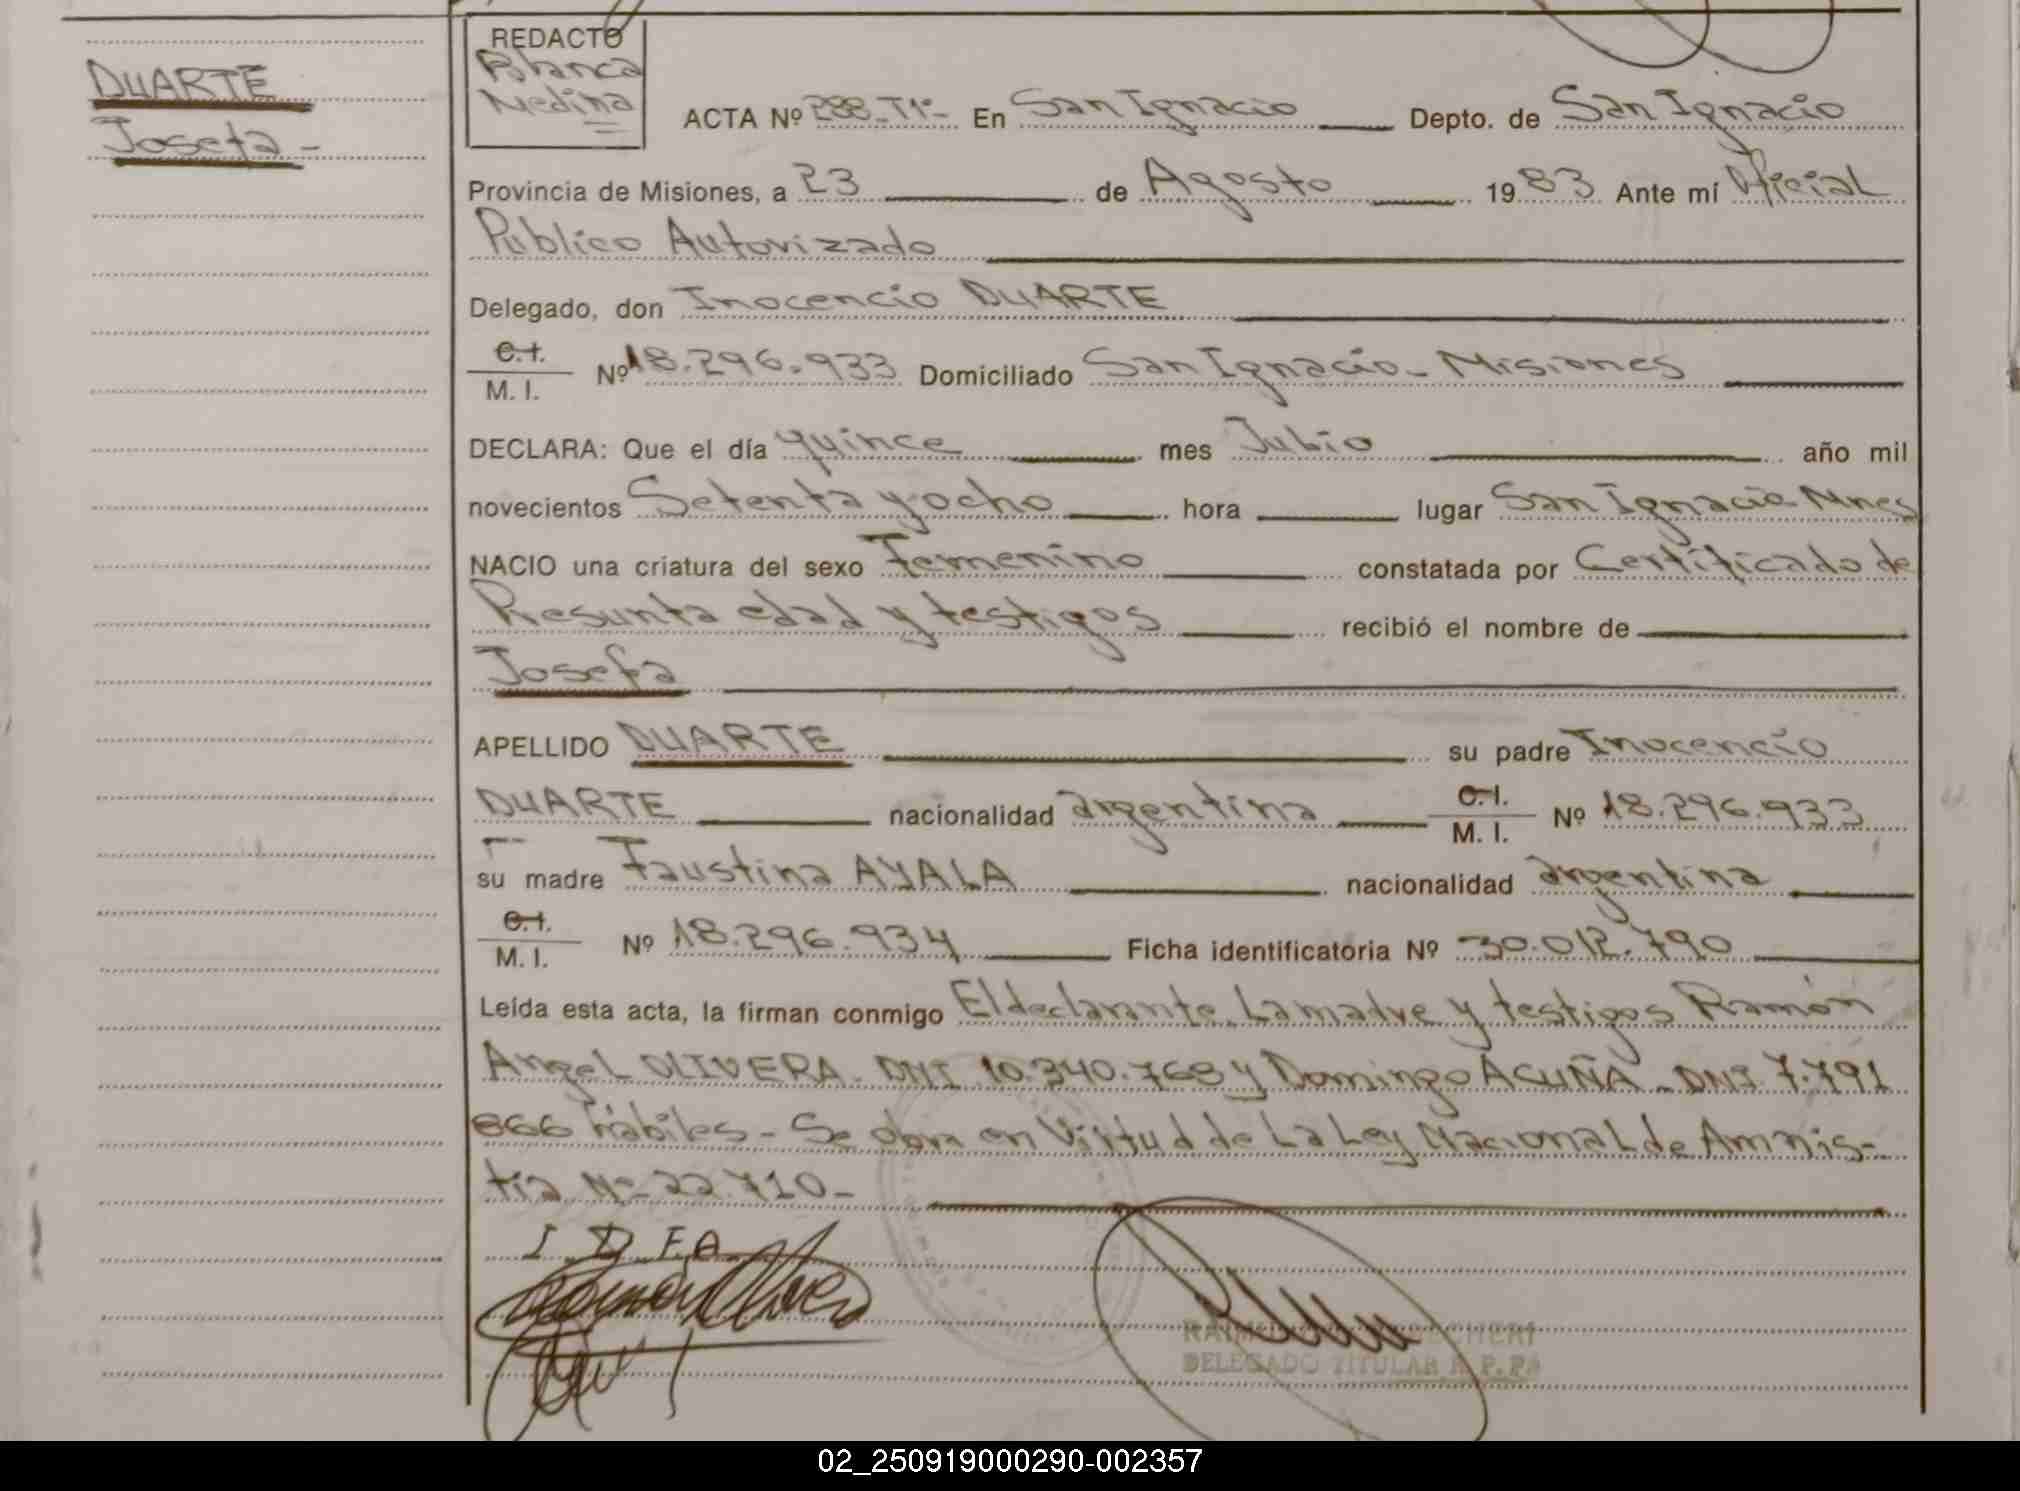 DUARTE
Josefa -
REDACTO
Blanca
Medina
ACTA Nº 288-T1- En San Ignacio Depto. de San Ignacio
Provincia de Misiones, a 23 de Agosto 1983 Ante mí Oficial
Público Autorizado
Delegado, don Inocencio DUARTE
C.I.
M. I. Nº 18.296.933 Domiciliado San Ignacio - Misiones
DECLARA: Que el día quince mes Julio año mil
novecientos Setenta y ocho hora lugar San Ignacio Mnes
NACIO una criatura del sexo Femenino constatada por Certificado de
Presunta edad y testigos recibió el nombre de
Josefa
APELLIDO DUARTE su padre Inocencio
DUARTE nacionalidad argentina C.I. M. I. Nº 18.296.933
su madre Faustina AYALA nacionalidad argentina
C.I.
M. I. Nº 18.296.934 Ficha identificatoria Nº 30.012.790
Leída esta acta, la firman conmigo El declarante, La madre y testigos Ramón
Angel OLIVERA. DNI 10.340.768 y Domingo ACUÑA - DNI 7.791
866 hábiles - Se obra en Virtud de La Ley Nacional de Amnis-
tia Nº 22.710 -
I. D. F. A.
DELEGADO TITULAR R. P. PA
02_250919000290-002357